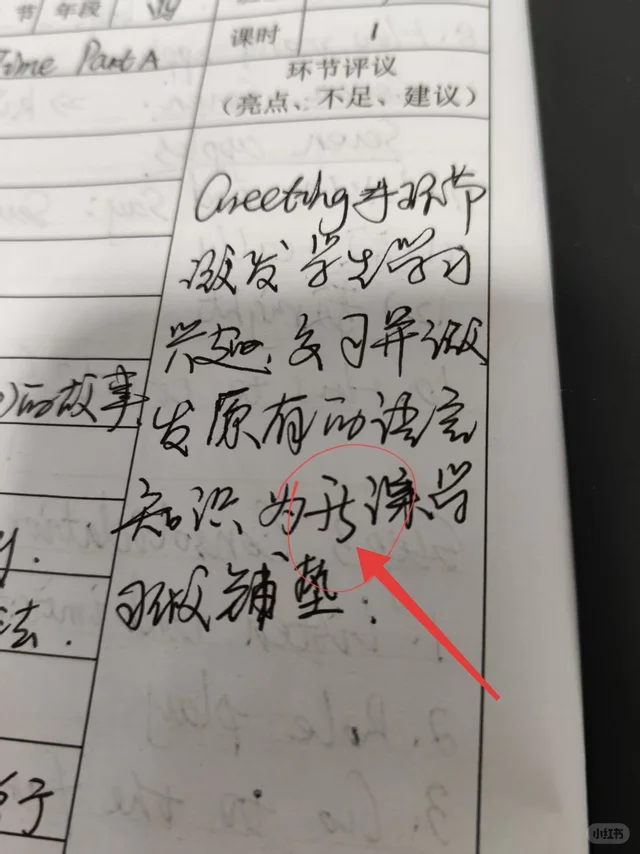 节 年段 四
课时 1
Time Part A
环节评议
（亮点、不足、建议）
Greeting等环节
激发学生学习
兴趣，复习并激
的故事
发原有的语言
知识为新课学
y.
习做铺垫.
法.
小红书